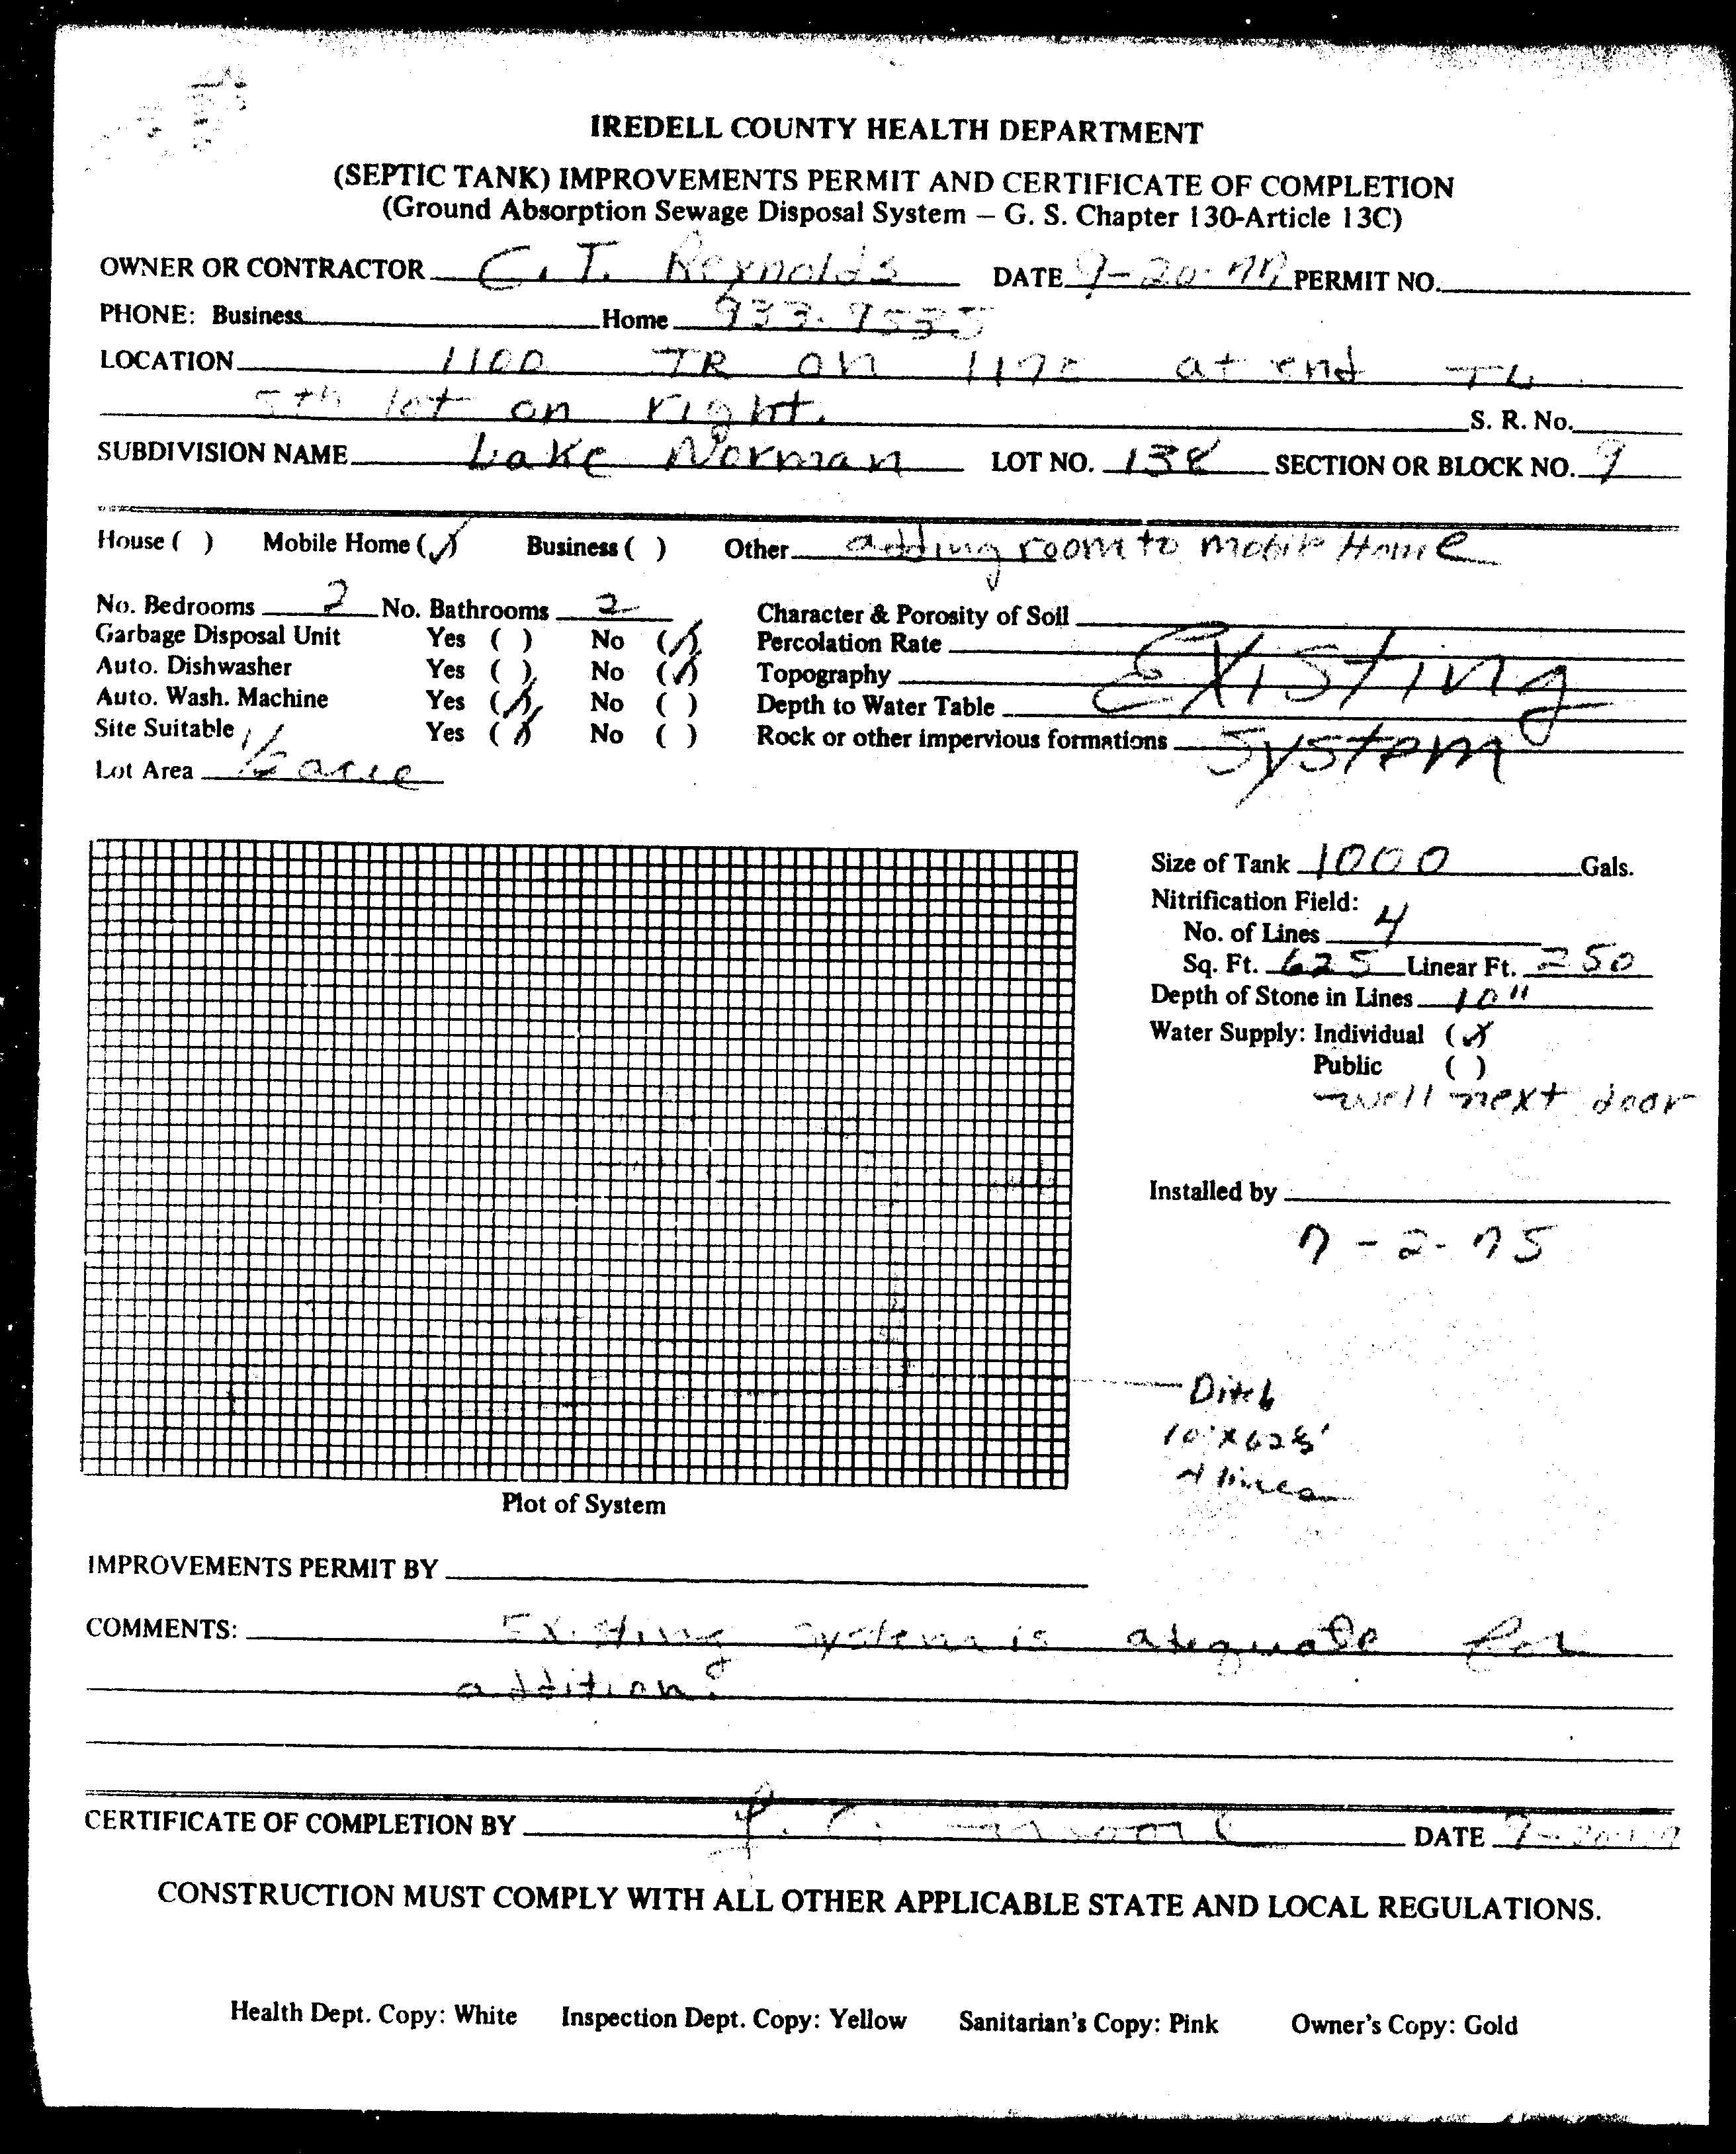 IREDELL COUNTY HEALTH DEPARTMENT
(SEPTIC TANK) IMPROVEMENTS PERMIT AND CERTIFICATE OF COMPLETION
(Ground Absorption Sewage Disposal System – G. S. Chapter 130-Article 13C)
OWNER OR CONTRACTOR C. T. Reynolds DATE 9-20-77 PERMIT NO.
PHONE: Business Home 933-9535
LOCATION 1100 TR on at end TL
5th lot on right. S. R. No.
SUBDIVISION NAME Lake Norman LOT NO. 138 SECTION OR BLOCK NO. 9
House ( ) Mobile Home (✓) Business ( ) Other adding room to mobile Home
No. Bedrooms 2 No. Bathrooms 2 Character & Porosity of Soil
Garbage Disposal Unit Yes ( ) No (✓) Percolation Rate Existing
Auto. Dishwasher Yes ( ) No (✓) Topography
Auto. Wash. Machine Yes (✓) No ( ) Depth to Water Table
Site Suitable Yes (✓) No ( ) Rock or other impervious formations System
Lot Area 1/2 acre
Size of Tank 1000 Gals.
Nitrification Field:
No. of Lines 4
Sq. Ft. 625 Linear Ft. 250
Depth of Stone in Lines 10"
Water Supply: Individual (✓)
Public ( )
well next door
Installed by
7-2-75
Ditch
4 lines
Plot of System
IMPROVEMENTS PERMIT BY
COMMENTS: Existing system is adequate for
addition.
CERTIFICATE OF COMPLETION BY DATE 9-20-77
CONSTRUCTION MUST COMPLY WITH ALL OTHER APPLICABLE STATE AND LOCAL REGULATIONS.
Health Dept. Copy: White Inspection Dept. Copy: Yellow Sanitarian's Copy: Pink Owner's Copy: Gold